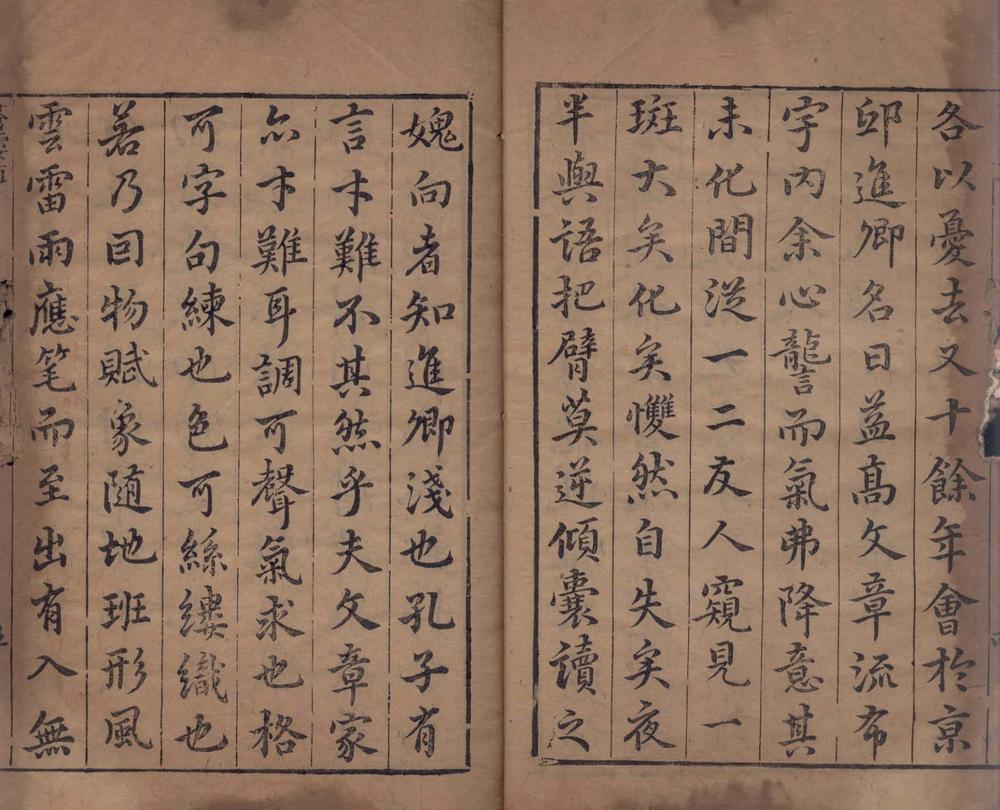 各以憂去又十餘年會於京
邸進卿名日益高文章流布
宇内余心讋而氣弗降意其
未化間從一二友人窺見一
斑大矣化矣戄然自失矣夜
半輿語把臂莫逆傾囊讀之
媿向者知進卿淺也孔子有
言才難不其然乎夫文章家
尒才難耳調可聲氣求也格
可字句練也色可絲縷織也
若乃因物賦象随地班形風
雲雷雨應笔而至出有入無